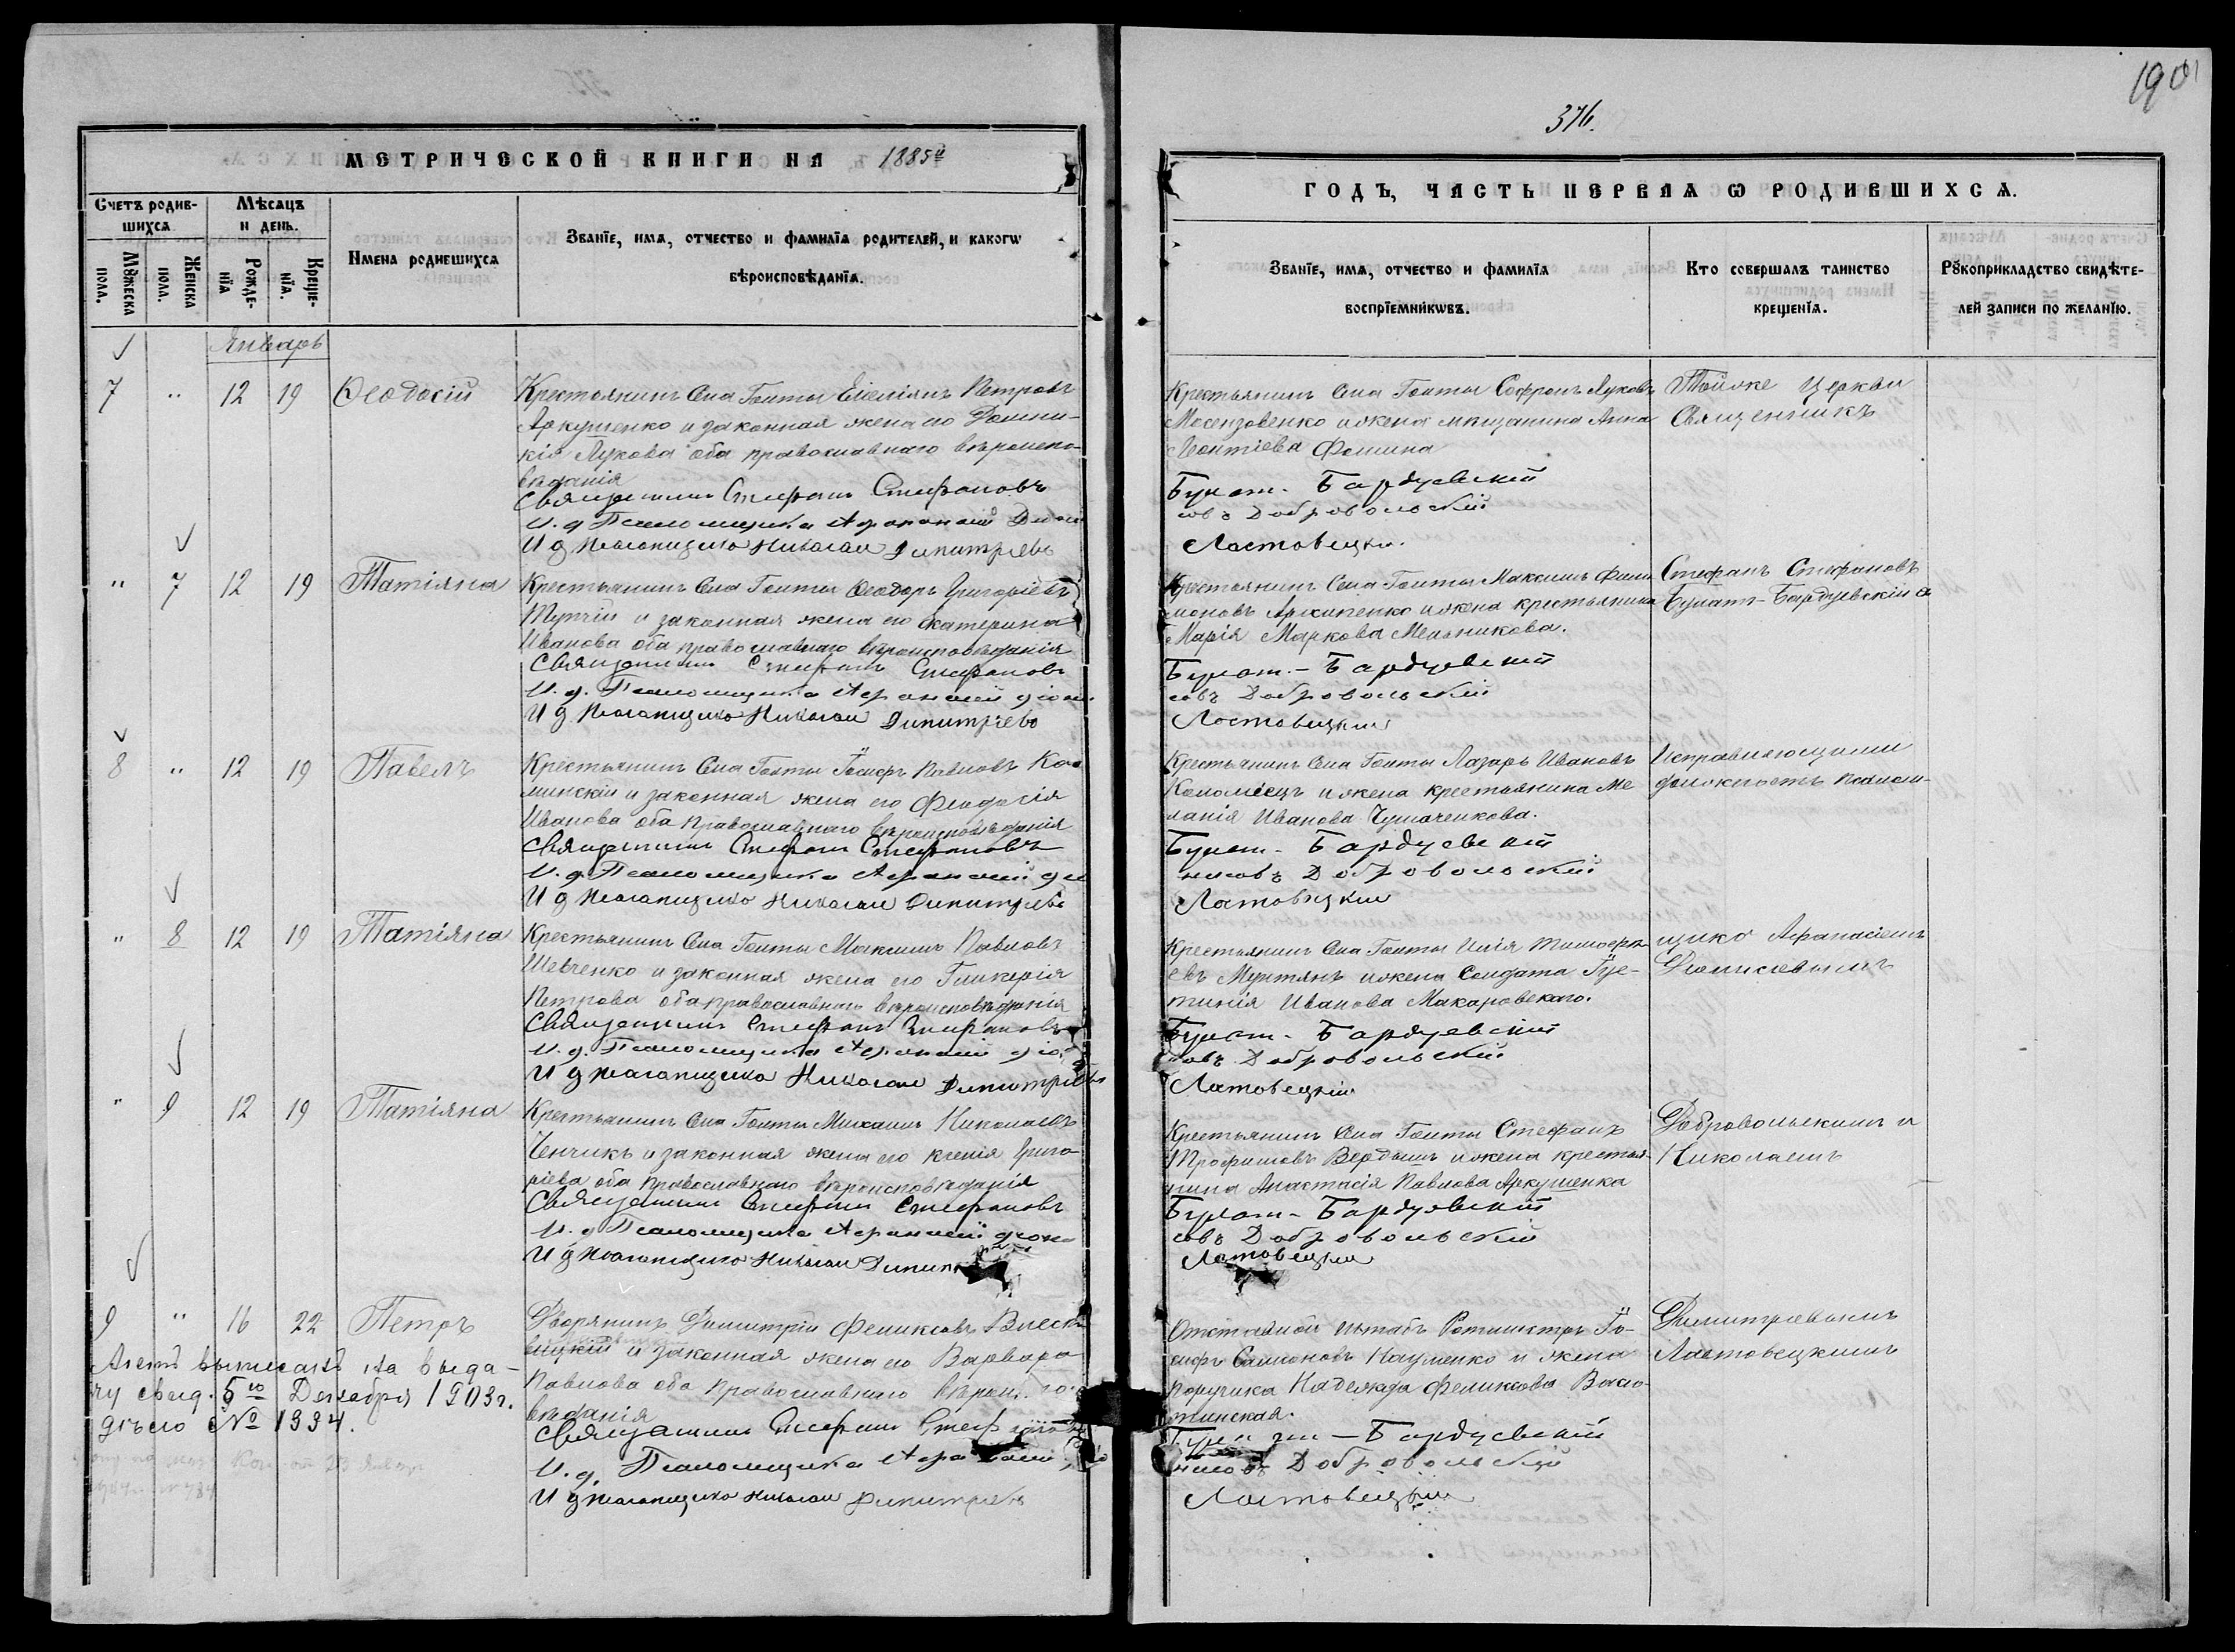 376.
190
МЕТРИЧЕСКОЙ КНИГИ НА 1885й
ГОДЪ, ЧАСТЬ ПЕРВАЯ Ѡ РОДИВШИХСЯ.
Счетъ родив-
шихся
Мѣсяцъ
и день.
Мꙋжеска
пола.
Женска
пола.
Рожде-
нїя
Креще-
нїя.
Имена родившихся
Званїе, имя, отчество и фамилїя родителей, и какогѡ
вѣроисповѣданїя.
Званїе, имя, отчество и фамилїя
воспрїемникѡвъ.
Кто совершалъ таинство
крещенїя.
Рꙋкоприкладство свидѣте-
лей записи по желанїю.
Январь
7 " 12 19 Ѳеодосій
Крестьянинъ Села Гоиты Емеліянъ Петровъ
Аркушенко и законная жена его Домни-
кія Лукова оба православнаго вѣроиспо-
вѣданія
Священникъ Стефанъ Стефановъ
И. д. Псаломщика Афанасій
И д Псаломщика Николай Димитріевъ
Крестьянинъ Села Гоиты Софронъ Луковъ
жена мѣщанина Анна
Леонтіева Фомина
Булат-Бардуевскій
совъ Добровольскій
Ластовецкій.
Тойже Церкви
Священникъ
" 7 12 19 Татіяна
Крестьянинъ Села Гоиты Ѳеодоръ Григоріевъ
и законная жена его Екатерина
Иванова оба православнаго вѣроисповѣданія
Священникъ Стефанъ Стефановъ
И. д. Псаломщика Афанасій
И д Псаломщика Николай Димитріевъ
Крестьянинъ Села Гоиты Максимъ Фили
моновъ Архипенко и жена крестьянина
Марія Маркова Мельникова.
Булат-Бардуевскій
совъ Добровольскій
Ластовецкій
Стефанъ Стефановъ
Булатъ-Бардуевскій съ
8 " 12 19 Павелъ
Крестьянинъ Села Гоиты Іосифъ Павловъ Ко-
минскій и законная жена его Феодосія
Иванова оба Православнаго вѣроисповѣданія
Священникъ Стефанъ Стефановъ
И. д. Псаломщика Афанасій
И д Псаломщика Николай Димитріевъ
Крестьянинъ Села Гоиты Лазарь Ивановъ
Коломіецъ и жена крестьянина Ме
ланія Иванова Чумаченкова.
Булат-Бардуевскій
нисовъ Добровольскій
Ластовецкій
Исправляющими
должность псалом-
" 8 12 19 Татіяна
Крестьянинъ Села Гоиты Максимъ Павловъ
Шевченко и законная жена его Гликерія
Петрова оба православнаго вѣроисповѣданія
Священникъ Стефанъ Стефановъ
И. д. Псаломщика Афанасій
И д Псаломщика Николай Димитріевъ
Крестьянинъ Села Гоиты Илія Тимофе-
евъ Мунтянъ и жена Солдата Іус-
тинія Иванова Макаровскаго.
Булат-Бардуевскій
совъ Добровольскій
Ластовецкій
щика Афанасіемъ
Діонисовымъ
" 9 12 19 Татіяна
Крестьянинъ Села Гоиты Михаилъ Николаевъ
Ченчикъ и законная жена его Ксенія Григо-
ріева оба Православнаго вѣроисповѣданія
Священникъ Стефанъ Стефановъ
И. д. Псаломщика Афанасій
И д Псаломщика Николай
Крестьянинъ Села Гоиты Стефанъ
Трофимовъ Вердышъ и жена крестья-
нина Анастасія Павлова Аркушенка
Булат-Бардуевскій
совъ Добровольскій
Ластовецкій
Добровольскимъ и
Николаемъ
9 " 16 22 Петръ
Дворянинъ Димитрій Феликсовъ
и законная жена его Варвара
Павлова оба Православнаго
вѣданія
Священникъ Стефанъ
И. д. Псаломщика
И д Псаломщика Николай Димитріевъ
Отставной Штабъ Ротмистръ Іо-
сифъ Самсоновъ Науменко и жена
Поручика Надежда Феликсова
Бардуевскій
нисовъ Добровольскій
Ластовецкій
Димитріевымъ
Ластовецкимъ
Актъ выписанъ на выда-
чу свид. 5го Декабря 1903г.
дѣло № 1334.